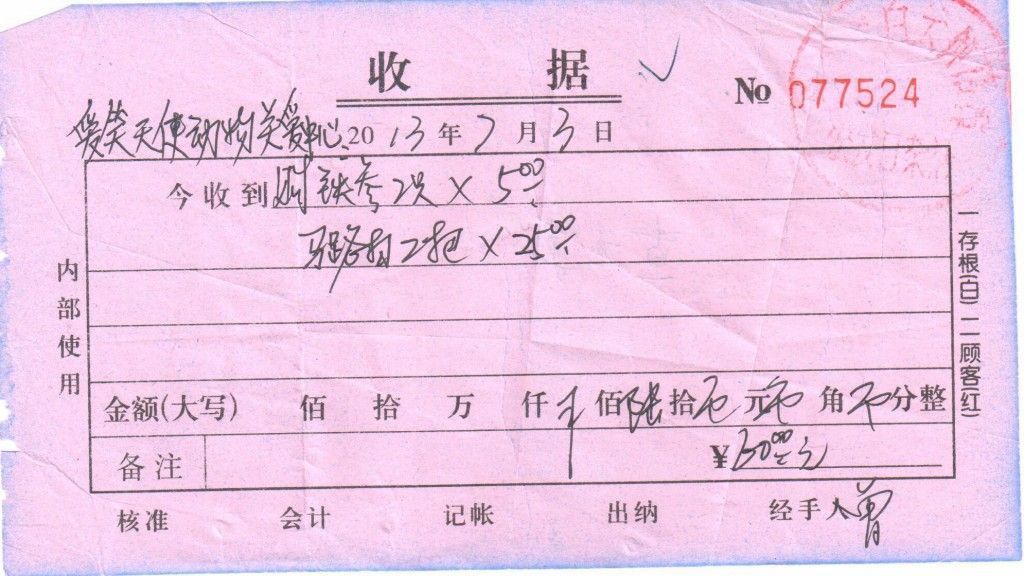 收 据
No 077524
爱笑天使动物关爱中心 2013年7月3日
今收到 铁 2 × 5.00
2把 × 25.00
内部使用
一存根(白)二顾客(红)
金额(大写) 佰 拾 万 仟 佰 陆 拾 元 角 分整
备注 ¥60.00元
核准 会计 记帐 出纳 经手人 曾